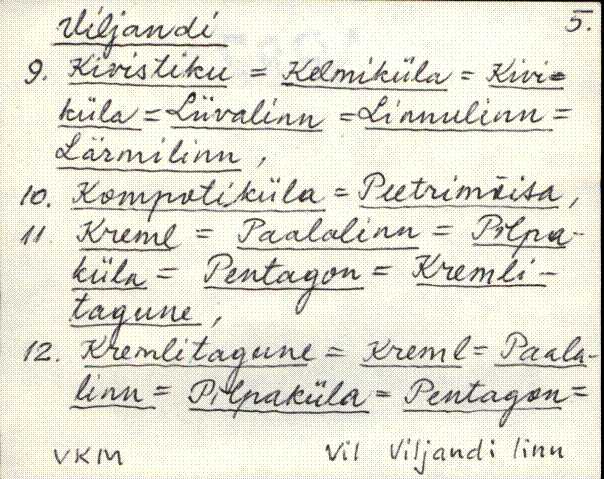 Viljandi 5.
9. Kivistiku = Kelmiküla = Kivi=
küla = Lüvalinn = Linnulinn =
Lärmilinn,
10. Kompotiküla = Peetrimõisa,
11 Kreml = Paalalinn = Pilpa-
küla = Pentagon = Kremli-
tagune,
12. Kremlitagune = Kreml = Paala-
linn = Pilpaküla = Pentagon =
VKM Vil Viljandi linn